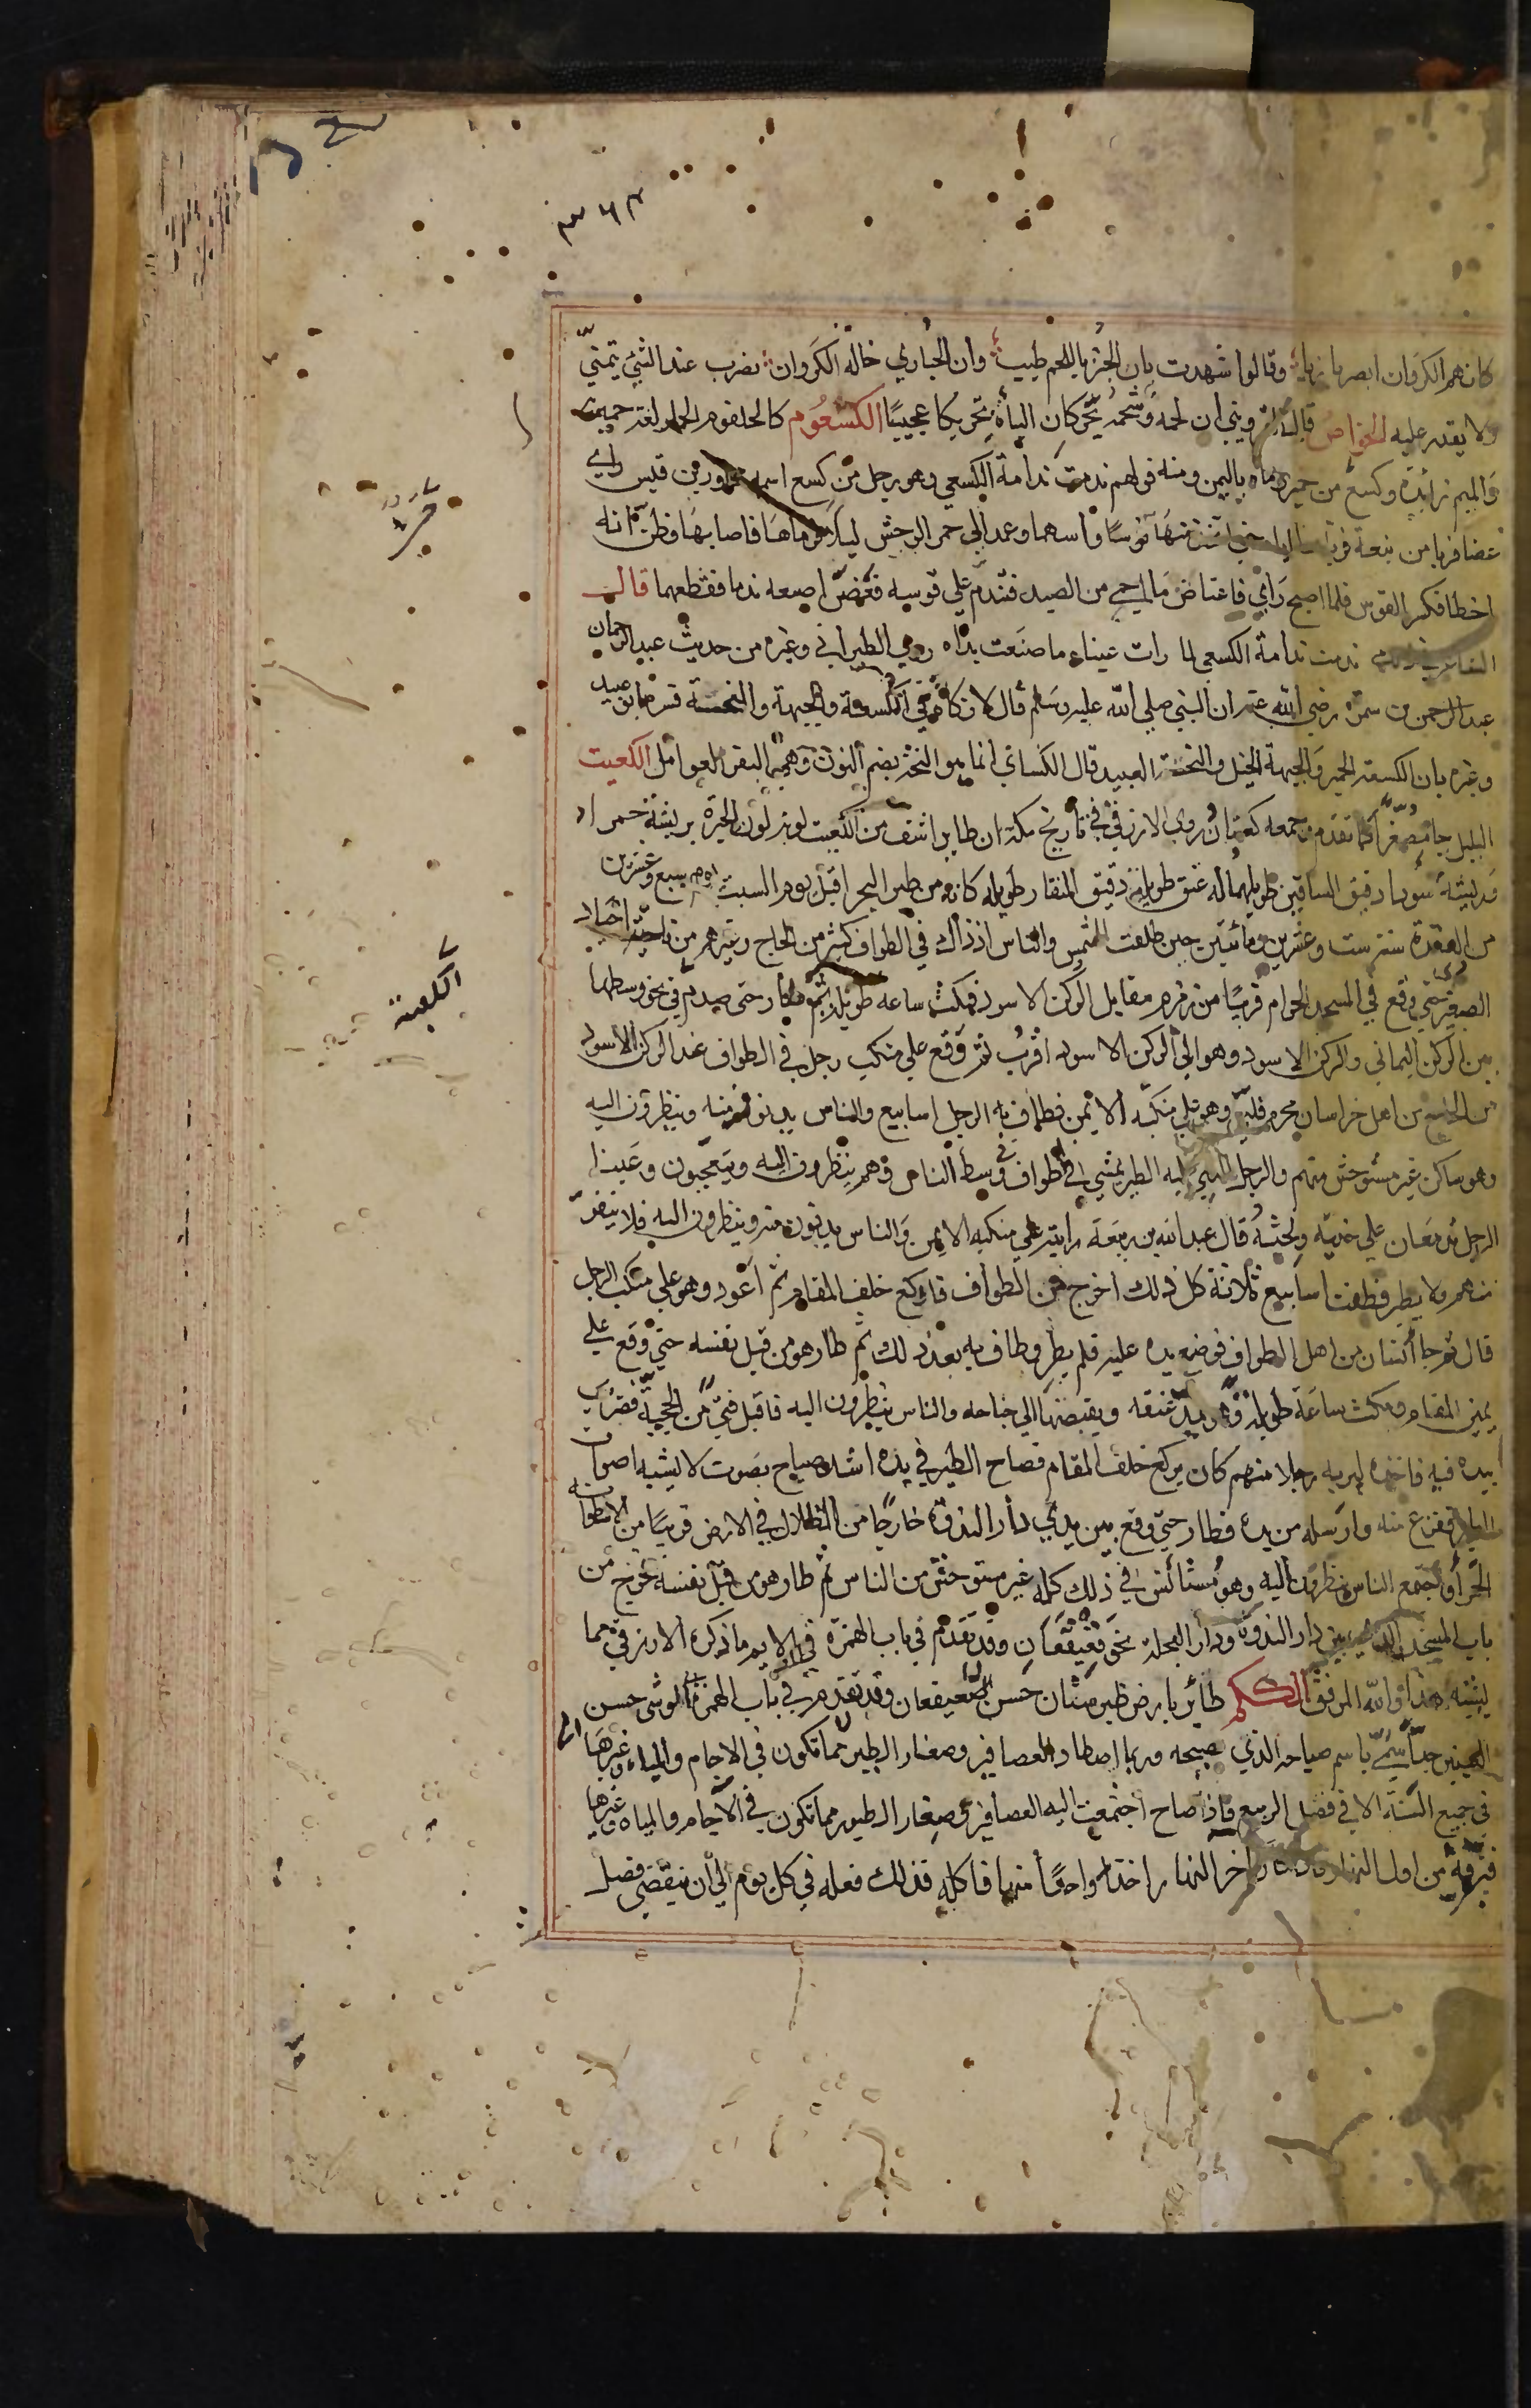 ٣٦٣
كانهم الكروان ابصر بازيا وقالوا شهدت بان الخبز باللحم طيب وان الحباري خالة الكروان يضرب عند الشئ يتمنى
ولا يقدر عليه الخواص قال القزويني ان لحمه وشحمه يحركان الباه تحريكا عجيبا الكسعوم كالحلقوم الحمار لغة حميرية
والميم زائدة وكسع من حمير رماه باليمن ومنه قولهم ندمت ندامة الكسعي وهو رجل من كسع اسمه قيس راي
عضا فربا من نبعة منها قوسا واسهما وعمد الي حمر الوحش ليلا فرماها فاصابها وظن انه
اخطا فكسر القوس فلما اصبح راي فاعتاض ما من الصيد فندم علي قوسه فعض اصبعه ندما فقطعها قال
الشاعر ندمت ندامة الكسعي لما رات عيناه ما صنعت يداه روي الطبراني وغيره من حديث عبد الرحمان
عبد الرحمن بن سمرة رضي الله عنه ان النبي صلي الله عليه وسلم قال لا زكاة في الكسعة والجبهة والنخة فسره ابو عبيد
وغيره بان الكسعة الحمير والجبهة الخيل والنخة العبيد قال الكسائي انما هو النخة بضم النون وهي البقر العوامل الكعيت
البلبل جا مصغرا كما تقدم وجمعه كعتان روي الازرقي في تاريخ مكة ان طايرا اشف من الكعيت لونه لون الحبرة بريشة حمرا
وريشة سودا دقيق الساقين طويلهما له عنق طويلة دقيق المنقار طويله كانه من طير البحر اقبل يوم السبت يوم سبع وعشرين
من القعدة سنة ست وعشرين ومائتين حين طلعت الشمس والناس اذ ذاك في الطواف كثير من الحاج وغيرهم من ناحية اجياد
الصغير حتي وقع في المسجد الحرام قريبا من زمزم مقابل الركن الاسود فمكث ساعة طويلة ثم طار حتى صدم في نحو وسطها
بين الركن اليماني والركن الاسود وهو الي الركن الاسود اقرب ثم وقع علي منكب رجل في الطواف عند الركن الاسود
من الحاج من اهل خراسان محرم فلبي وهو علي منكبه الايمن فطاف به الرجل اسابيع والناس يدنون منه وينظرون اليه
وهو ساكن غير مستوحش منهم والرجل الذي عليه الطير يمشي في الطواف في وسط الناس وهم ينظرون اليه ويتعجبون وعينا
الرجل تدمعان علي خديه ولحيته قال عبد الله بن ربيعة رايته علي منكبه الايمن والناس يدنون منه وينظرون اليه فلا ينفر
منهم ولا يطير فطفت اسابيع ثلاثة كل ذلك اخرج من الطواف فاركع خلف المقام ثم اعود وهو علي منكب الرجل
قال ثم جا انسان من اهل الطواف فوضع يده عليه فلم يطر وطاف به بعد ذلك ثم طار هو من قبل نفسه حتي وقع علي
يمين المقام ومكث ساعة طويلة وهو يمد عنقه ويقبضها الي جناحه والناس ينظرون اليه فاقبل فتي من الحجبة فضرب
بيده فيه فاخذه ليريه رجلا منهم كان يركع خلف المقام فصاح الطير في يده اشد صياح بصوت لا يشبه اصوات
الطير ففزع منه وارسله من يده فطار حتي وقع بين يدي دار الندوة خارجا من الظلال في الارض قريبا من الاسطوانة
الحمرا واجتمع الناس ينظرون اليه وهو مستانس في ذلك كله غير مستوحش من الناس ثم طار هو من قبل نفسه فخرج من
باب المسجد الذي بين دار الندوة ودار العجلة نحو قعيقعان وقد تقدم في باب الهمزة في الايم ما ذكره الازرقي مما
يشبه هذا والله الموفق الكم طائر بارض طبرستان حسن وقد تقدم في باب الهمز الموشي حسن
العينين جدا سمي باسم صياحه الذي يصيحه وربما اصطاد العصافير وصغار الطير مما تكون في الاجام والمياه وغيرها
في جميع السنة الا في فصل الربيع فاذا صاح اجتمعت اليه العصافير وصغار الطيور مما تكون في الاجام والمياه وغيرها
فتزقه من اول النهار فاذا كان اخر النهار اخذ واحدا منها فاكله فذلك فعله في كل يوم الي ان ينقضي فصل
الكعيت